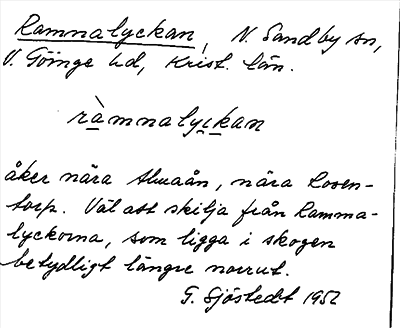 Ramnalyckan, N. Sandby sn,
V. Göinge hd, Krist. län.
ràmnalyckan
åker nära Almaån, nära Rosen-
torp. Väl att skilja från Ramna-
lyckorna, som ligga i skogen
betydligt längre norrut.
G. Sjöstedt 1952